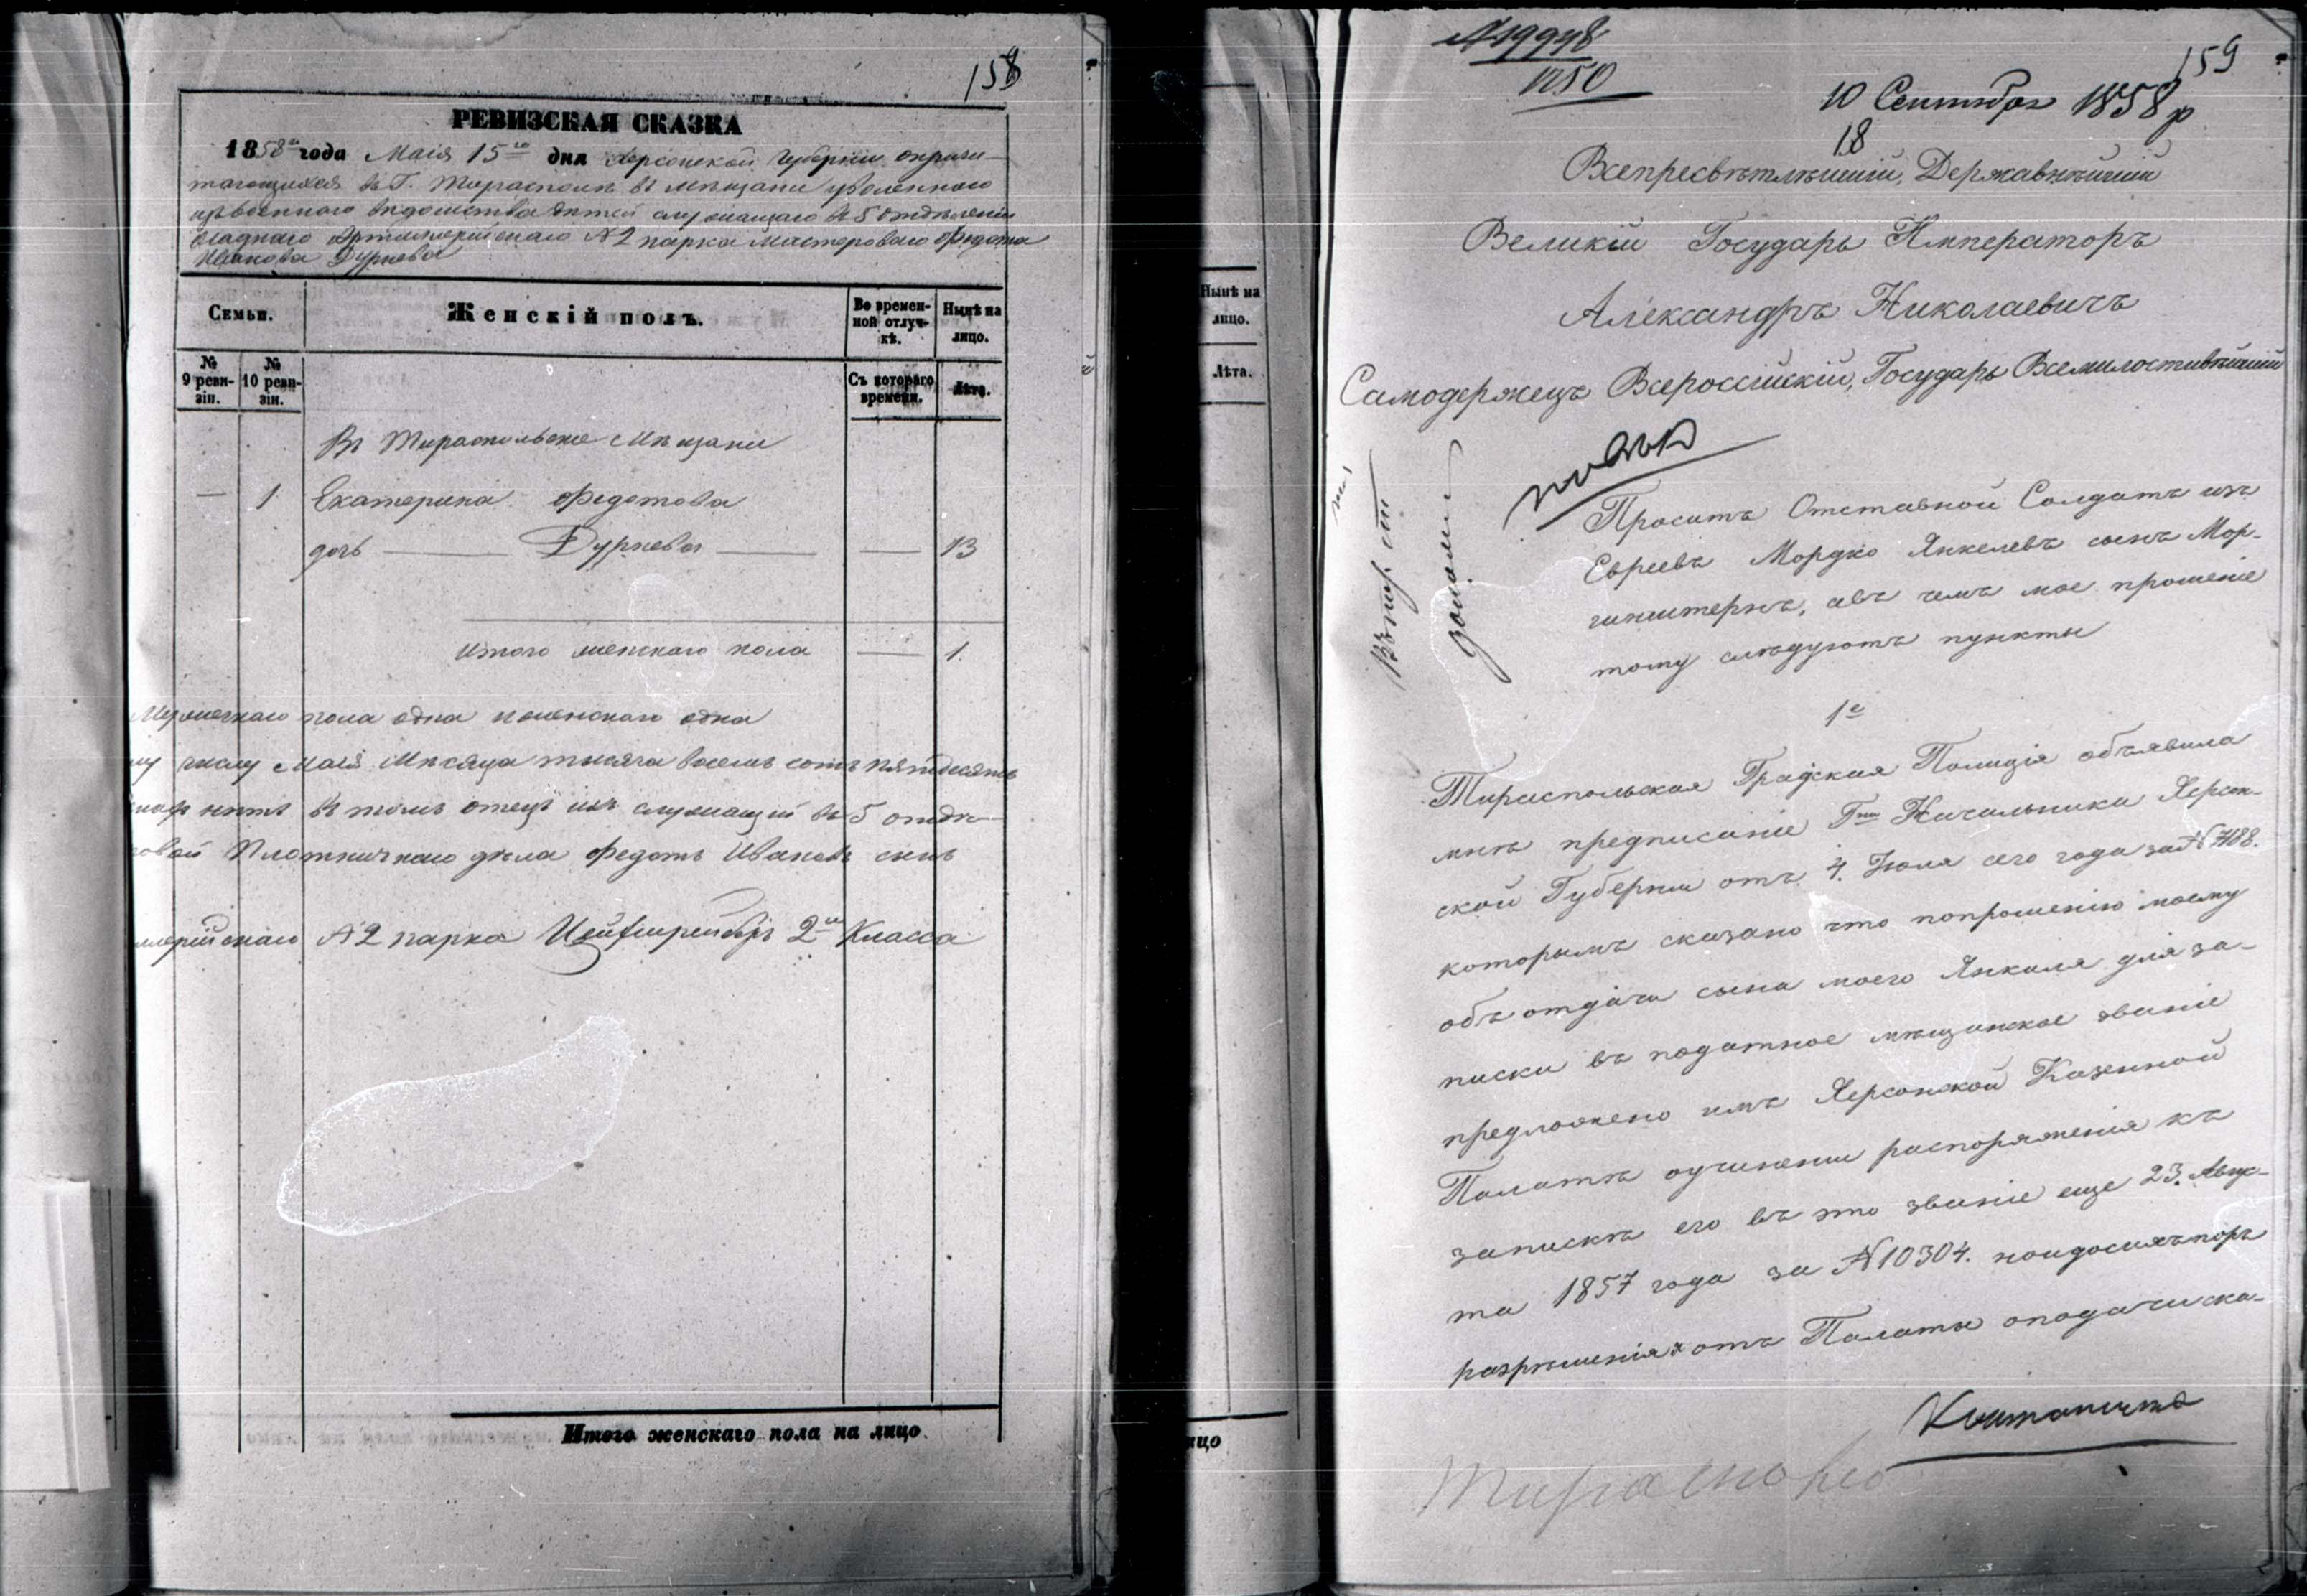 158
РЕВИЗСКАЯ СКАЗКА
1858го года Маія 15го дня Херсонской Губерніи о причи-
тающихся въ Г. Тирасполѣ въ мѣщани уволеннаго
изъ военнаго вѣдомства дѣтей служащаго въ 5 отдѣленіи
осаднаго Артиллерійскаго №2 парка мастероваго Федота
Иванова Дурнева
Семьи.
Женскій полъ.
Во времен-
ной отлуч-
кѣ.
Нынѣ на
лицо.
№
9 реви-
зіи.
№
10 реви-
зіи.
Съ котораго
времени.
Лѣта.
Въ Тираспольскіе Мѣщани
— 1 Екатерина Федотова
дочь — Дурнева — — 13
Итого женскаго пола — 1.
Мужескаго пола одна и женскаго одна
числу Маія Мѣсяца тысяча восемь сотъ пятдесятъ
нѣтъ въ томъ отецъ ихъ служащій въ 5 отдѣ-
Плотничнаго дѣла Федотъ Ивановъ сынъ
ллерійскаго №2 парка Цейгшрейберъ 2го Класса
Итого женскаго пола на лицо.
Нынѣ на
лицо.
Лѣта.
ицо
№19998
1250
159
10 Сентября 1858 р
18
Всепресвѣтлѣйшій, Державнѣйшій
Великій Государь Императоръ
Александръ Николаевичъ
Самодержецъ Всероссійскій, Государь Всемилостивѣйшій
Проситъ Отставной Солдатъ изъ
Евреевъ Мордко Янкелевъ сынъ Мор-
гинштернъ, а въ чемъ мое прошеніе
тому слѣдуютъ пункты
1е
Тираспольская Градская Полиція объявила
мнѣ предписаніе Гна Начальника Херсон-
ской Губерніи отъ 4. Іюля сего года за №7188.
которымъ сказано что по прошенію моему
объ отдачи сына моего Янкеля для за-
писки въ податное мѣщанское званіе
предложено имъ Херсонской Казенной
Палатѣ о учиненіи распоряженія къ
запискѣ его въ это званіе еще 23. Авгус-
та 1857 года за №10304. но и до сихъ поръ
разрѣшенія отъ Палаты о подачи ска-
Тирасполь